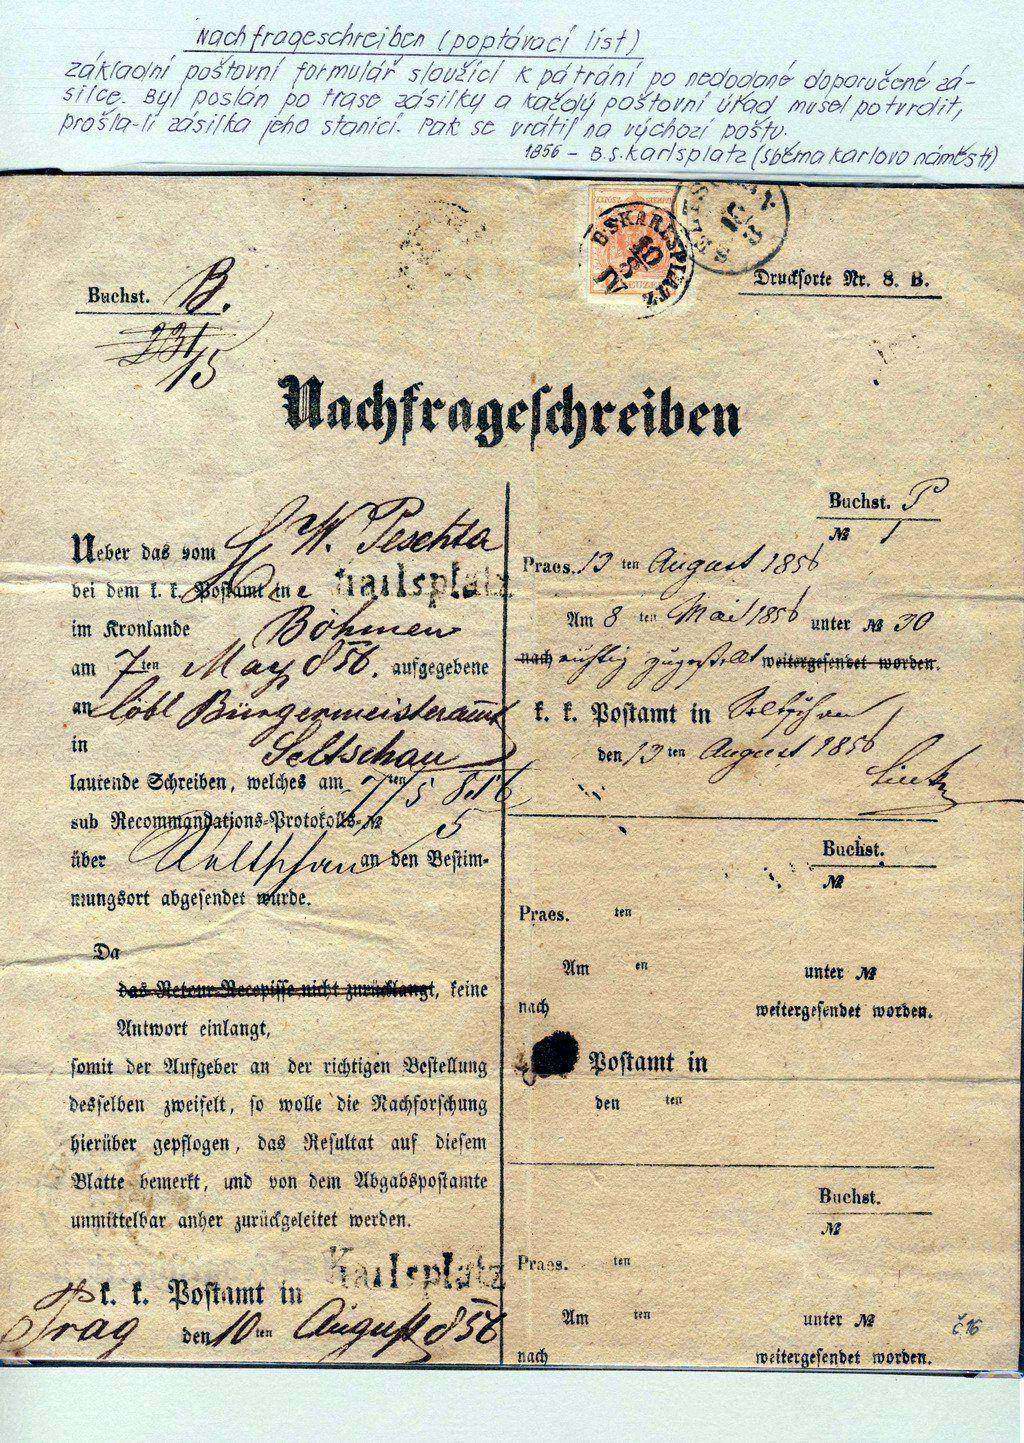 Nachfrageschreiben (poptávací list)
základní poštovní formulář sloužící k pátrání po nedodané doporučené zá-
silce. Byl poslán po trase zásilky a každý poštovní úřad musel potvrdit,
prošla-li zásilka jeho stanicí. Pak se vrátil na výchozí poštu.
1856 – B.S. Karlsplatz (sběrna Karlovo náměstí)
B.S.KARLSPLATZ
Druckſorte Nr. 8. B.
Buchst. B.
231/15
Nachfrageſchreiben
Ueber das vom W. Peschta
bei dem k. k. Poſtamt in Karlsplatz
im Kronlande Böhmen
am 7ten May 856. aufgegebene
an löbl Bürgermeisteramt
in Seltschau
lautende Schreiben, welches am 7ten/5 856
sub Recommandations-Protokolls-№ 5
über an den Beſtim-
mungsort abgeſendet wurde.
Da
das Retour-Recepiſſe nicht zurücklangt, keine
Antwort einlangt,
ſomit der Aufgeber an der richtigen Beſtellung
desſelben zweifelt, ſo wolle die Nachforſchung
hierüber gepflogen, das Reſultat auf dieſem
Blatte bemerkt, und von dem Abgabspoſtamte
unmittelbar anher zurückgeleitet werden.
k. k. Poſtamt in Karlsplatz
Prag den 10ten August 856
Buchst. P
№ 1
Praes. 13 ten August 1856
Am 8 ten Mai 1856 unter № 30
nach richtig zugestellt weitergeſendet worden.
k. k. Poſtamt in Seltschau
den 13 ten August 1856
Buchst.
№
Praes. ten
Am en unter №
nach weitergeſendet worden.
Poſtamt in
den ten
Buchst.
№
Praes. ten
Am ten unter №
nach weitergeſendet worden.
č.16